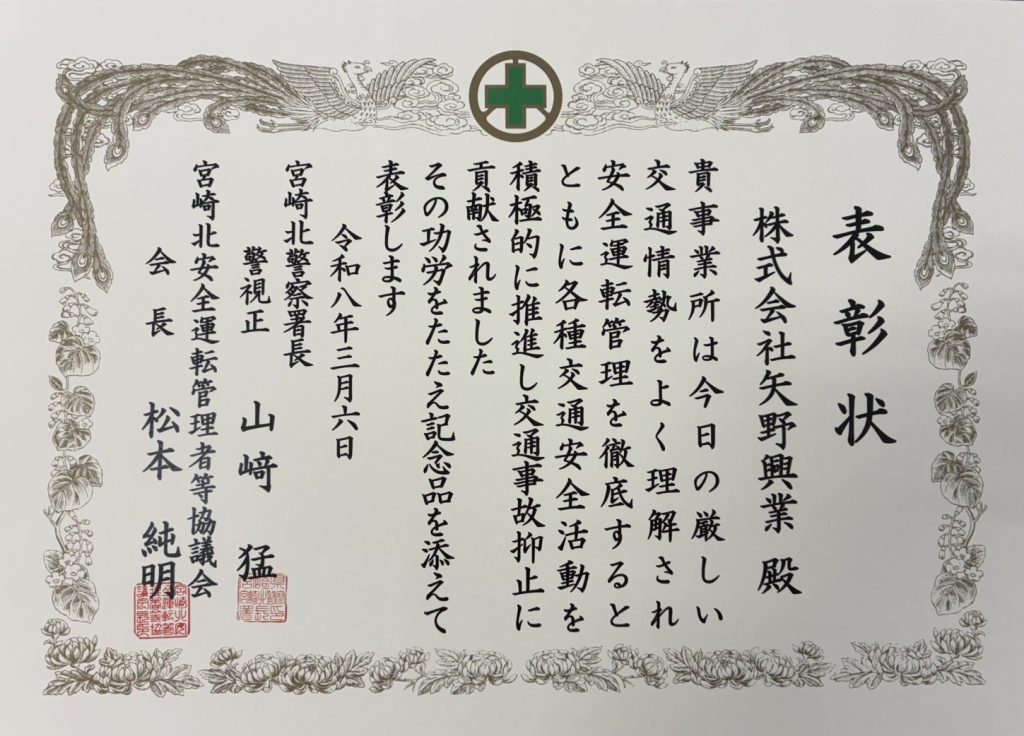 表彰状
株式会社矢野興業 殿
貴事業所は今日の厳しい
交通情勢をよく理解され
安全運転管理を徹底すると
ともに各種交通安全活動を
積極的に推進し交通事故抑止に
貢献されました
その功労をたたえ記念品を添えて
表彰します
令和八年三月六日
宮崎北警察署長
警視正 山﨑 猛
宮崎北安全運転管理者等協議会
会長 松本 純明